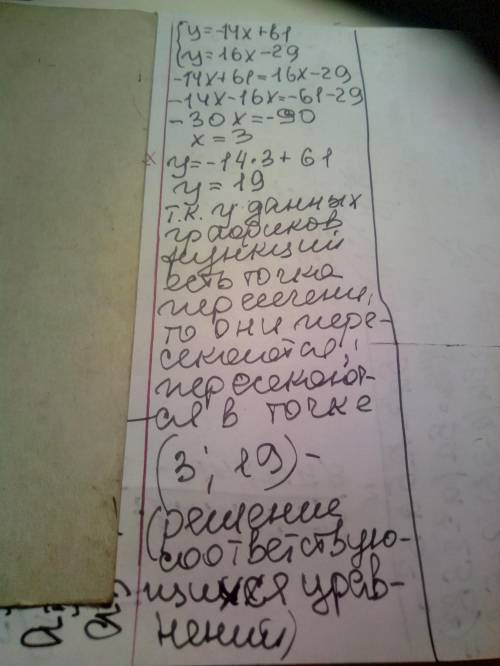 {y=-14x+61
y=16x-29
-14x+61=16x-29
-14x-16x=-61-29
-30x=-90
x=3
y=-14·3+61
y=19
т.к. у данных
графиков
функций
есть точка
пересечени,
то они пере-
секаются,
пересекают-
ся в точке
(3; 19) -
(решение
соответствую-
щихся урав-
нений)